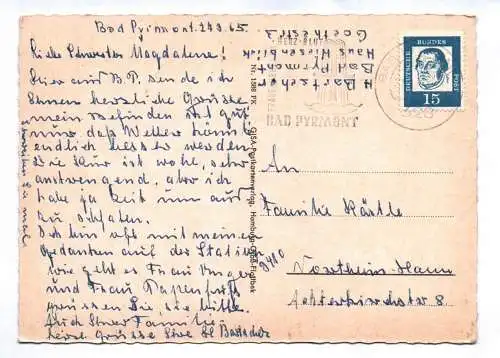 Bad Pyrmont. 24.8.65.
Liebe Schwester Magdalene!
Hier aus B.P. sende ich
Ihnen herzliche Grüsse
mein Befinden ist gut
nur das Wetter könnte
endlich besser werden
Die Kur ist wohl, sehr
anstrengend, aber ich
habe ja Zeit um aus
zu schlafen.
Ich bin oft mit meinen
Gedanken auf der Station
wie geht es Frau Unger
und Frau Papenfuss
grüssen Sie, sie bitte.
Auch Ihrer Familie
herzl. Grüsse Ihre H. Bartsch
Schreiben Sie mal
H. Bartsch
Bad Pyrmont
Haus Wiesenblick
Goethestr.
HERZ-BLUT
BAD PYRMONT
DEUTSCHE BUNDESPOST
15
An
Familie Kästle
3410
Northeim-Hann
8